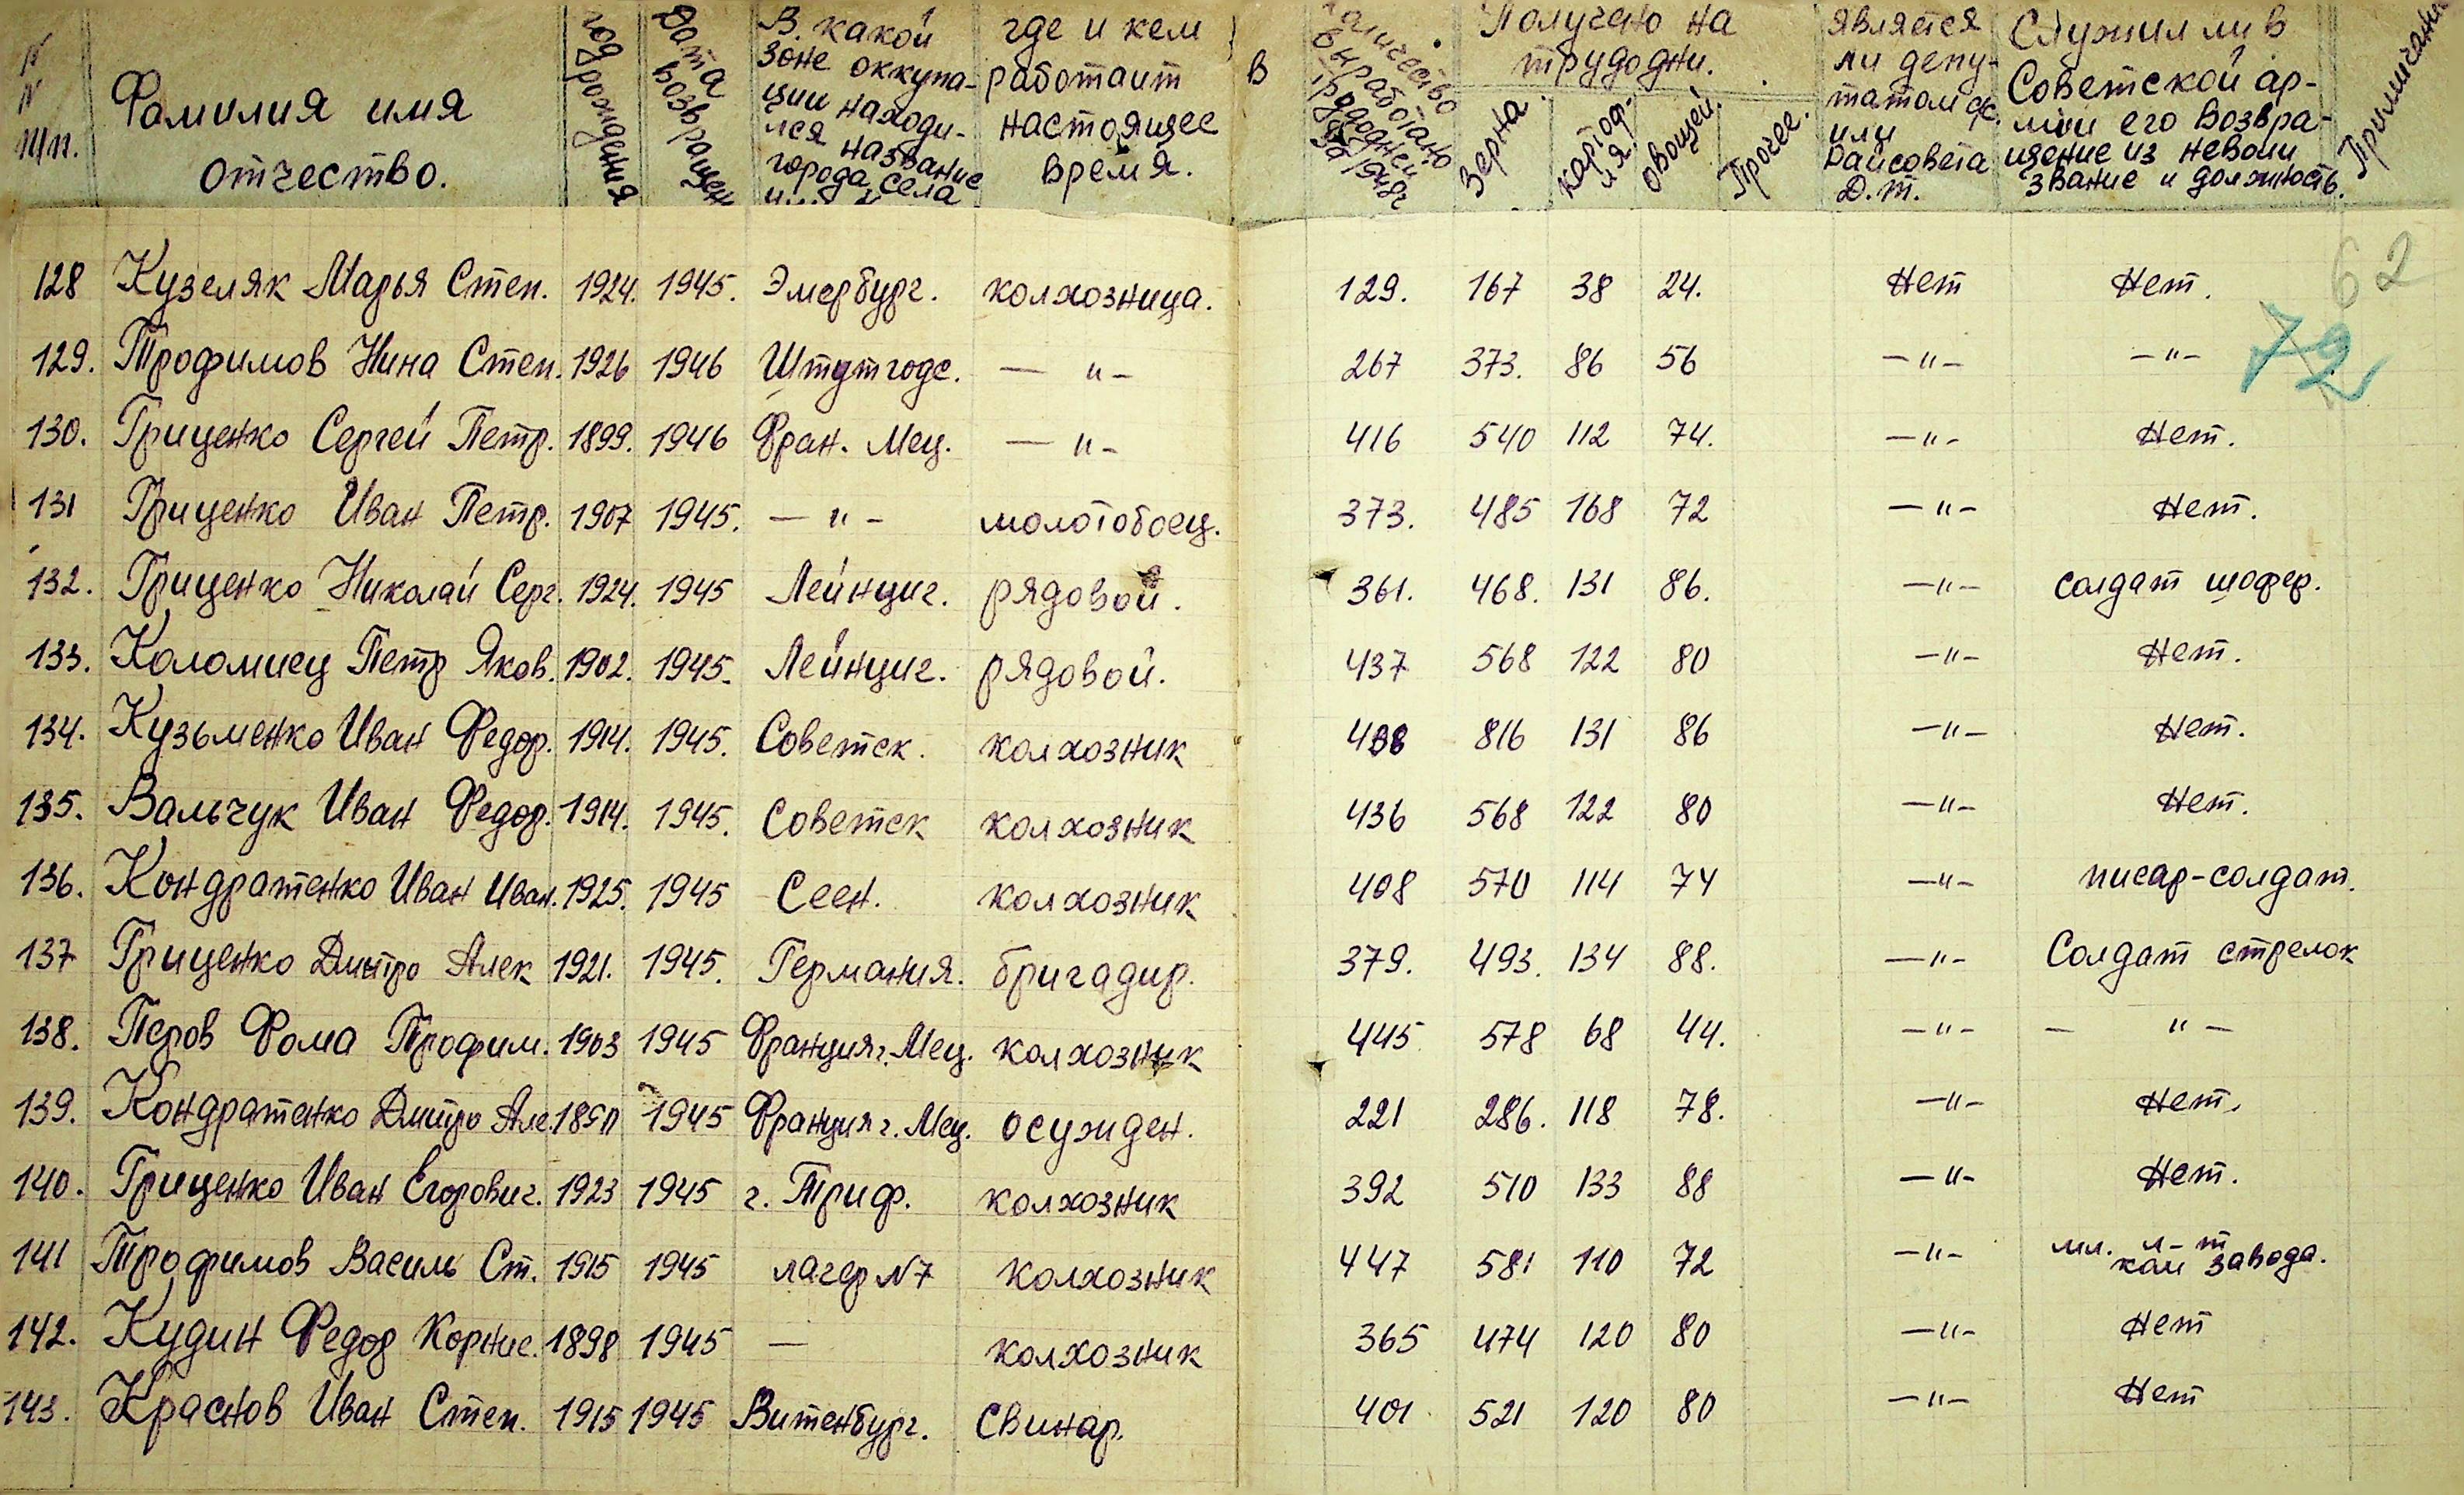 N
N
п/п.
Фамилия имя
отчество.
год рождения
Дата
возвращен
В какой
зоне оккупа-
ции находи-
лся название
города, села
где и кем
работаит
настоящее
время.
В
выработано
трудодней
Получено на
трудодни.
Зерна.
картоф-
ля.
овощей.
Прочее.
является
ли депу-
татом с/с.
или
Райсовета
Д.т.
Служил ли в
Советской ар-
мии его возвра-
щение из неволи
звание и должность.
Примичание
62
72
128 Кузеляк Марья Степ. 1924. 1945. Эмербург. колхозница. 129. 167 38 24. Нет Нет.
129. Трофимов Нина Степ. 1926 1946 Штутгодс. — " - 267 373. 86 56 — " - — " -
130. Гриценко Сергей Петр. 1899. 1946 Фран. Мец. — " - 416 540 112 74. — " - Нет.
131 Гриценко Иван Петр. 1907 1945. — " - молотобоец. 373. 485 168 72 — " - Нет.
132. Гриценко Николай Серг. 1924. 1945 Лейнциг. рядовой. 361. 468. 131 86. — " - солдат шофер.
133. Коломиец Петр Яков. 1902. 1945. Лейнциг. рядовой. 437 568 122 80 — " - Нет.
134. Кузьменко Иван Федор. 1914. 1945. Советск. колхозник 816 131 86 — " - Нет.
135. Вальчук Иван Федор. 1914. 1945. Советск колхозник 436 568 122 80 — " - Нет.
136. Кондратенко Иван Иван. 1925. 1945 Сеен. колхозник 408 570 114 74 — " - писар-солдат.
137 Гриценко Дмитро Алек 1921. 1945. Германия. бригадир. 379. 493. 134 88. — " - Солдат стрелок
138. Перов Фома Трофим. 1903 1945 Франция г. Мец. колхозник 445 578 68 44. — " - — " —
139. Кондратенко Дмитро Але. 1890 1945 Франция г. Мец. осужден. 221 286. 118 78. — " - Нет.
140. Гриценко Иван Егорович. 1923 1945 г. Триф. колхозник 392 510 133 88 — " - Нет.
141 Трофимов Василь Ст. 1915 1945 лагер N7 колхозник 447 581 110 72 — " - мл. л-т
ком завода.
142. Кудин Федор Корние. 1898 1945 — колхозник 365 474 120 80 — " - Нет
143. Краснов Иван Степ. 1915 1945 Витенбург. Свинар. 401 521 120 80 — " - Нет